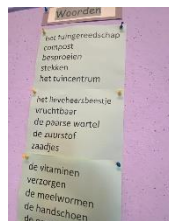 Woorden
het tuingereedschap
compost
besproeien
stekken
het tuincentrum
het lieveheersbeestje
vruchtbaar
de paarse wortel
de zuurstof
zaadjes
de vitaminen
verzorgen
de meelwormen
de handschoen